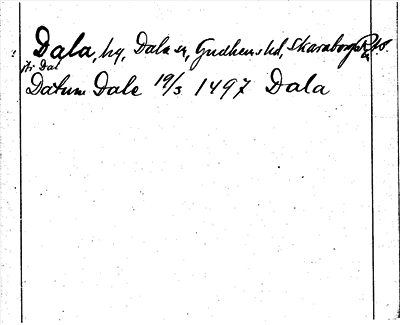 Dala, by, Dala sn, Gudhems hd, Skaraborgs
Datum Dale 19/3 1497 Dala